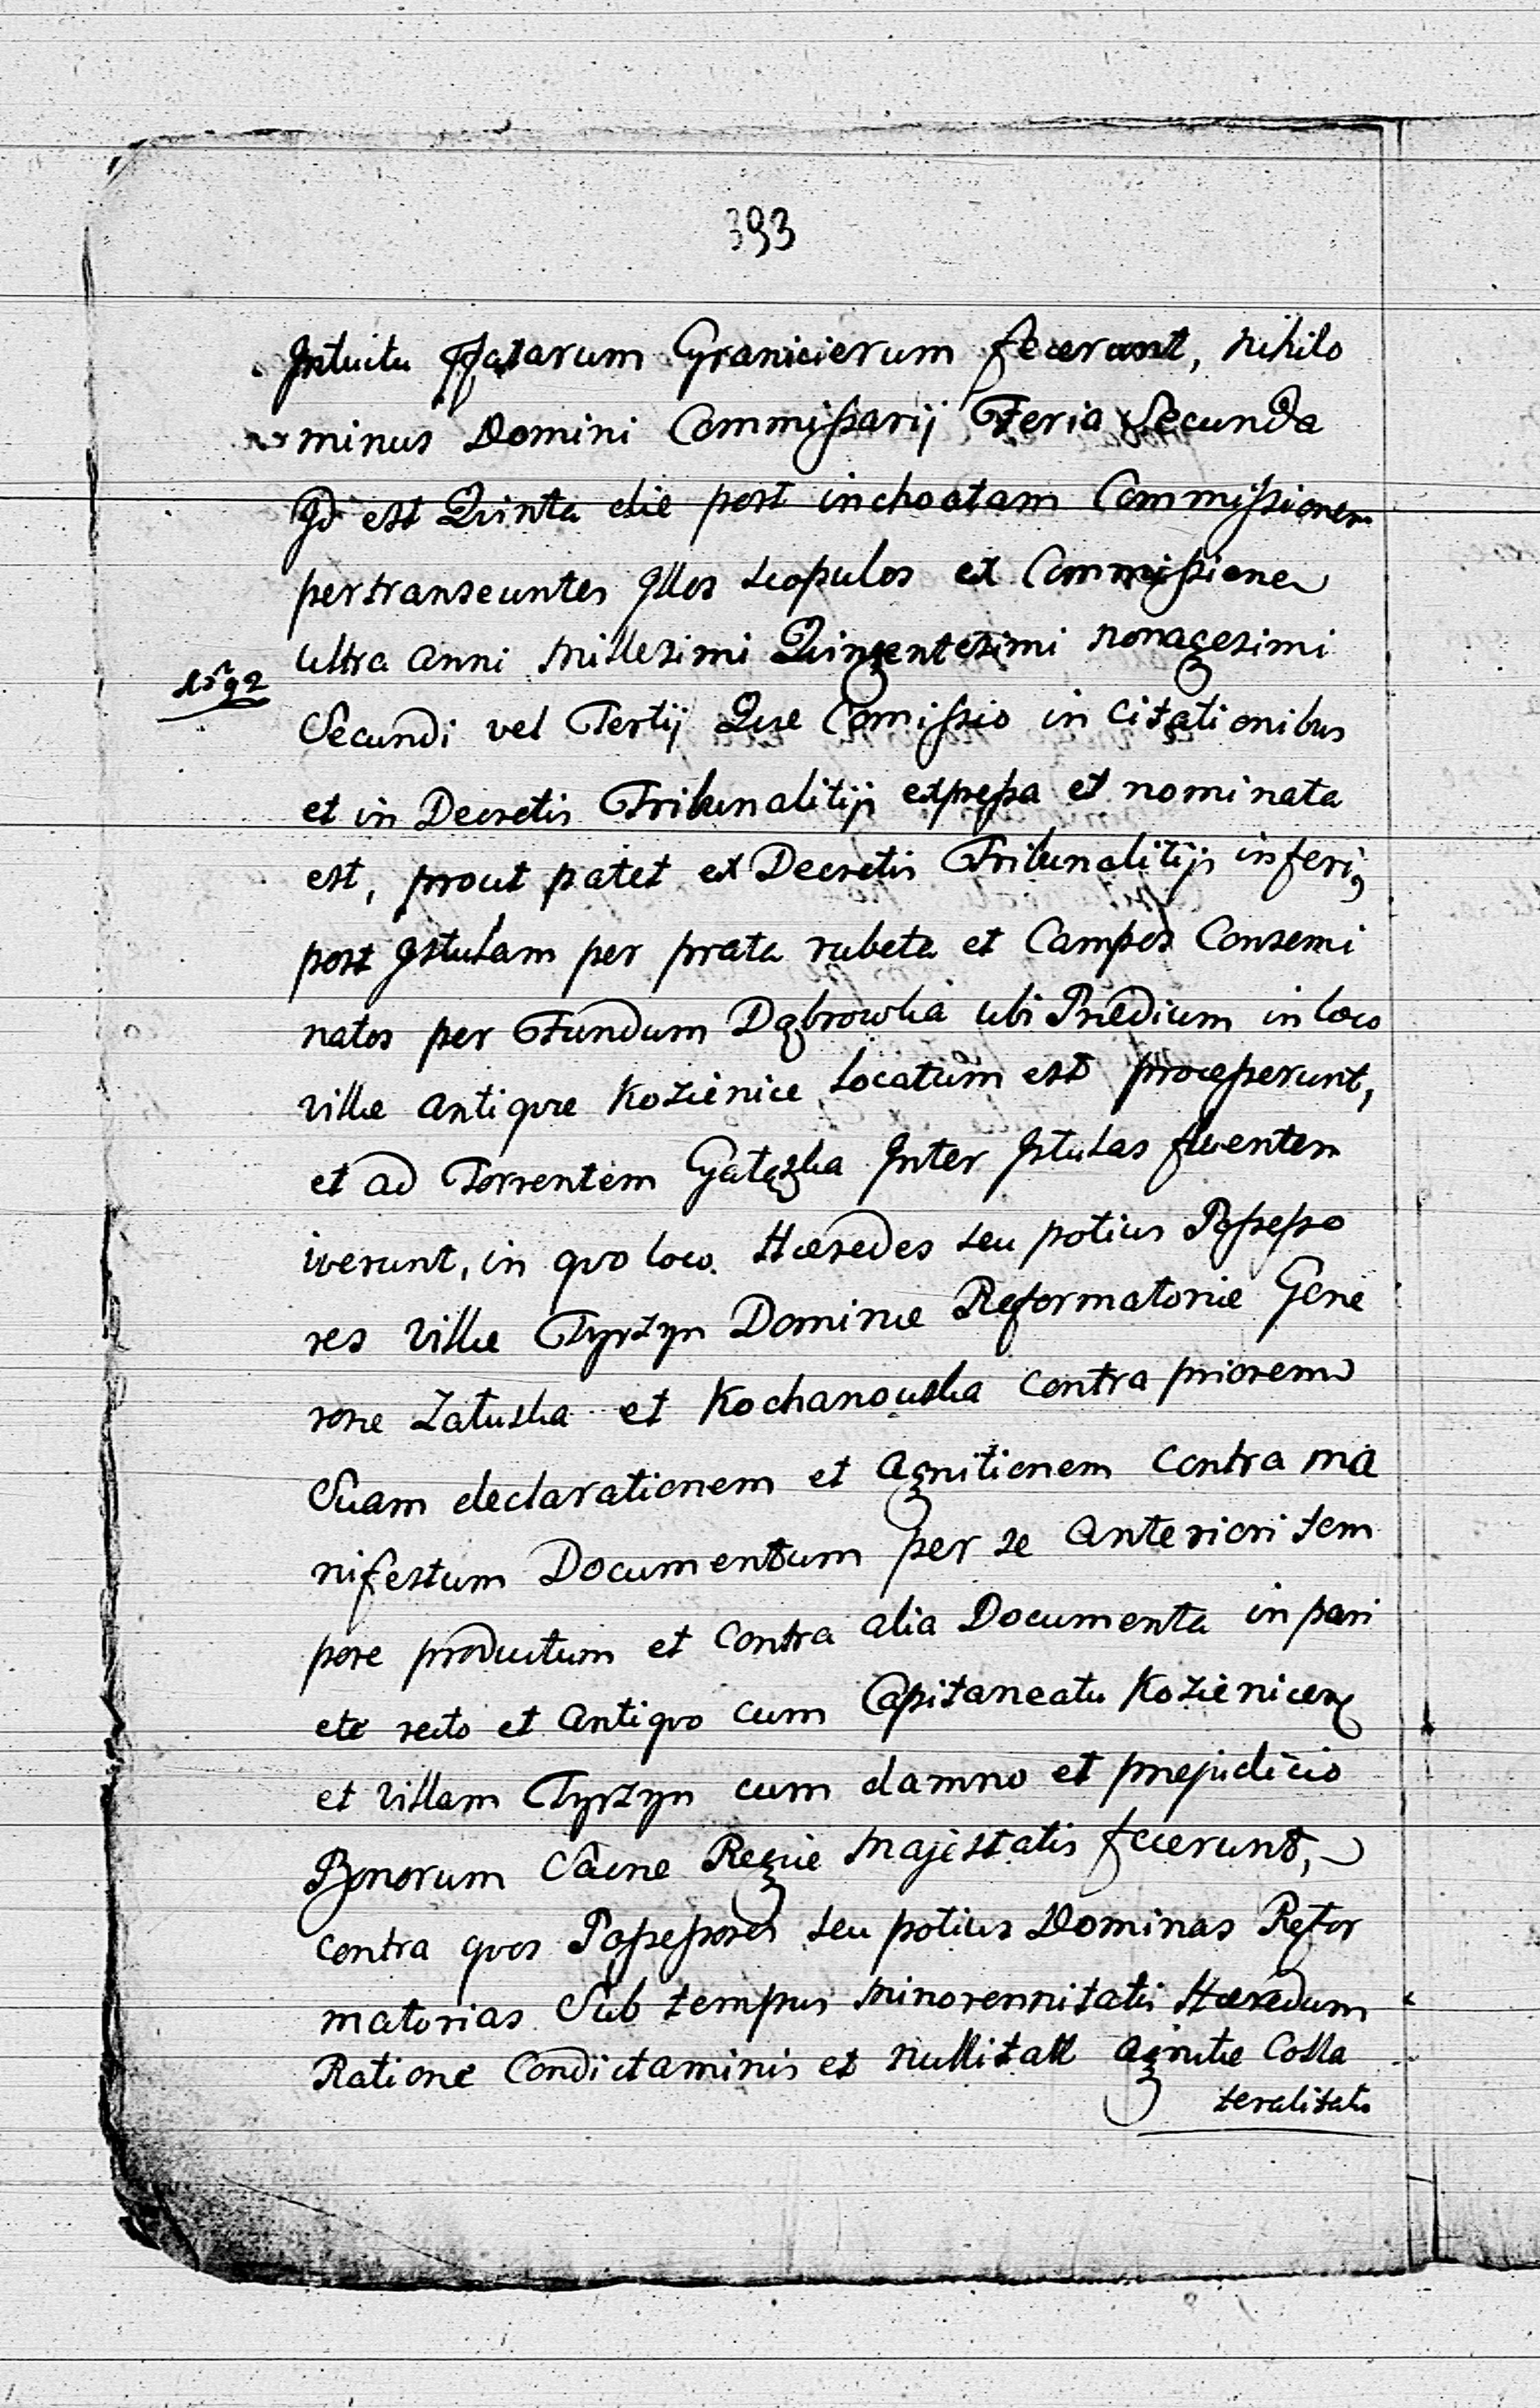 393
Intuitu ffatarum Granicierum fecerunt, nihilo
minus Domini Commissarij Feria Secunda
Id est Quinta die post inchoatam Commissionem
pertranseuntes Illos scopulos ex Commissione
ultra anni Millesimi Quingentesimi nonagesimi
1592
Secundi vel Tertij Quæ Comissio in Citationibus
et in Decretis Tribunalitijs expressa et nominata
est, prout patet ex Decretis Tribunalitijs inferi9
post Istulam per prata rubeta et Campos Consemi
natos per Fundum Dąbrowka ubi Prædium in loco
villæ antiquæ Kozienice Locatum est processerunt,
et ad Torrentem Gałązka Inter Istulas fluentem
iverunt, in quo loco. Hæredes seu potius Possesso
res Villæ Tyrzyn Dominæ Reformatoriæ Gene
rosæ Załuska et Kochanowska contra priorem
Suam declarationem et agnitionem contra ma
nifestum Documentum per se anteriori tem
pore productum et contra alia Documenta in pari
ete recto et antiquo cum Capitaneatu Kozienicen
et Villam Tyrzyn cum damno et præjudicio
Bonorum Sacræ Regiæ Majestatis fecerunt,
contra quos Possessores seu potius Dominas Refor
matorias Sub tempus minorennitatis Hæredum
Ratione Condictaminis et nullitatt agnitæ Colla
teralitatis